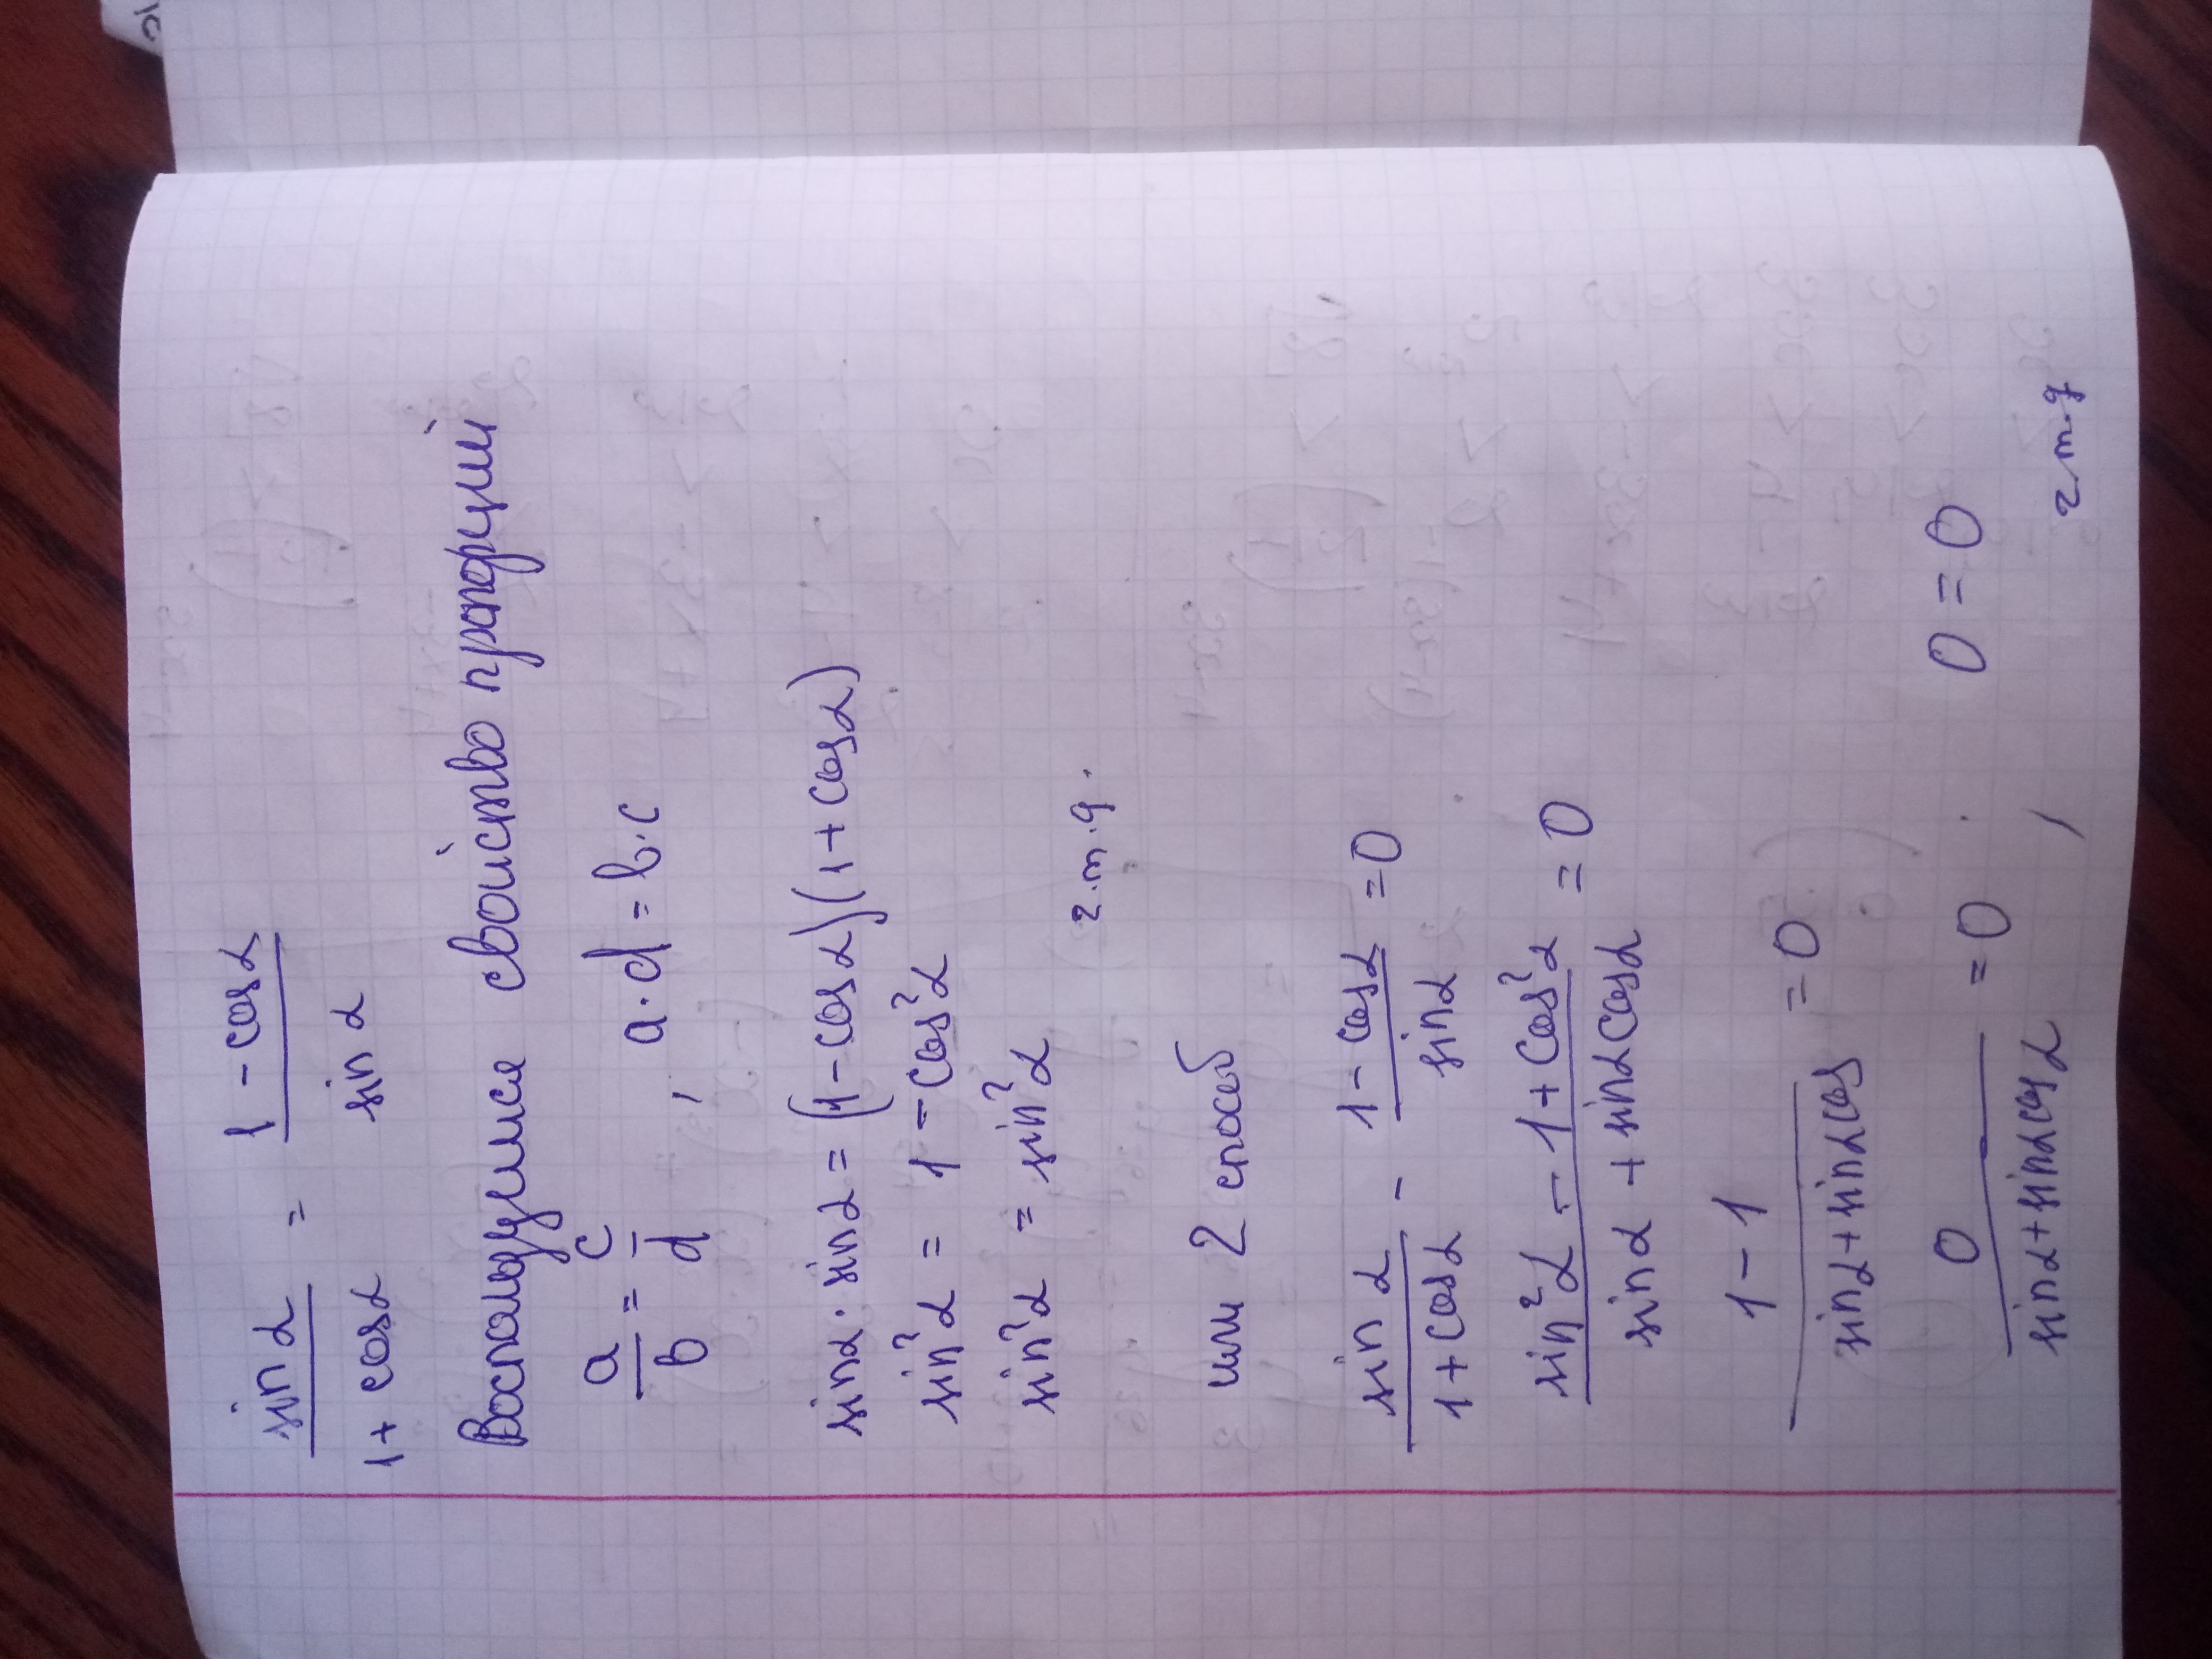 sin α / 1 + cos α = 1 - cos α / sin α
Воспользуемся свойством пропорции
a / b = c / d , a · d = b · c
sin α · sin α = (1 - cos α)(1 + cos α)
sin² α = 1 - cos² α
sin² α = sin² α
ч.т.д.
или 2 способ
sin α / 1 + cos α - 1 - cos α / sin α = 0
sin² α - 1 + cos² α / sin α + sin α cos α = 0
1 - 1 / sin α + sin α cos = 0
0 / sin α + sin α cos α = 0 , 0 = 0
ч т.д